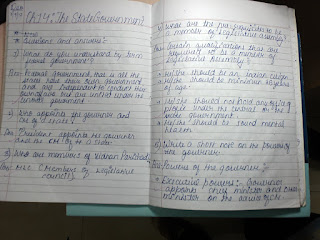 Ch 14: The State Government
Question and answers:
1) What do you understand by term
federal government?
Ans: Federal Government that is all the
states have their own government
and are independent to conduct their
own affairs but are united under the
central government
2) Who appoints the governor and
CM of a state?
Ans: President appoints the governor
and the CM of a state.
3) Who are members of Vidhan Parishad?
Ans: MLC (Members of legislative
council)
4) What are the pre requisites to be
a member of legislative assembly?
Ans: Certain qualifications that are
required to be a member of
legislative assembly:
He/She should be an Indian citizen
He/She should be minimum 25 years
of age
He/She should not hold any office of
profit under the central or the
state government.
He/She should be sound mental
health.
5) Write a short note on the powers of
the governor.
Ans: Powers of the governor:-
Executive powers:- Governor
appoints chief minister and other
ministers on the advice of CM.